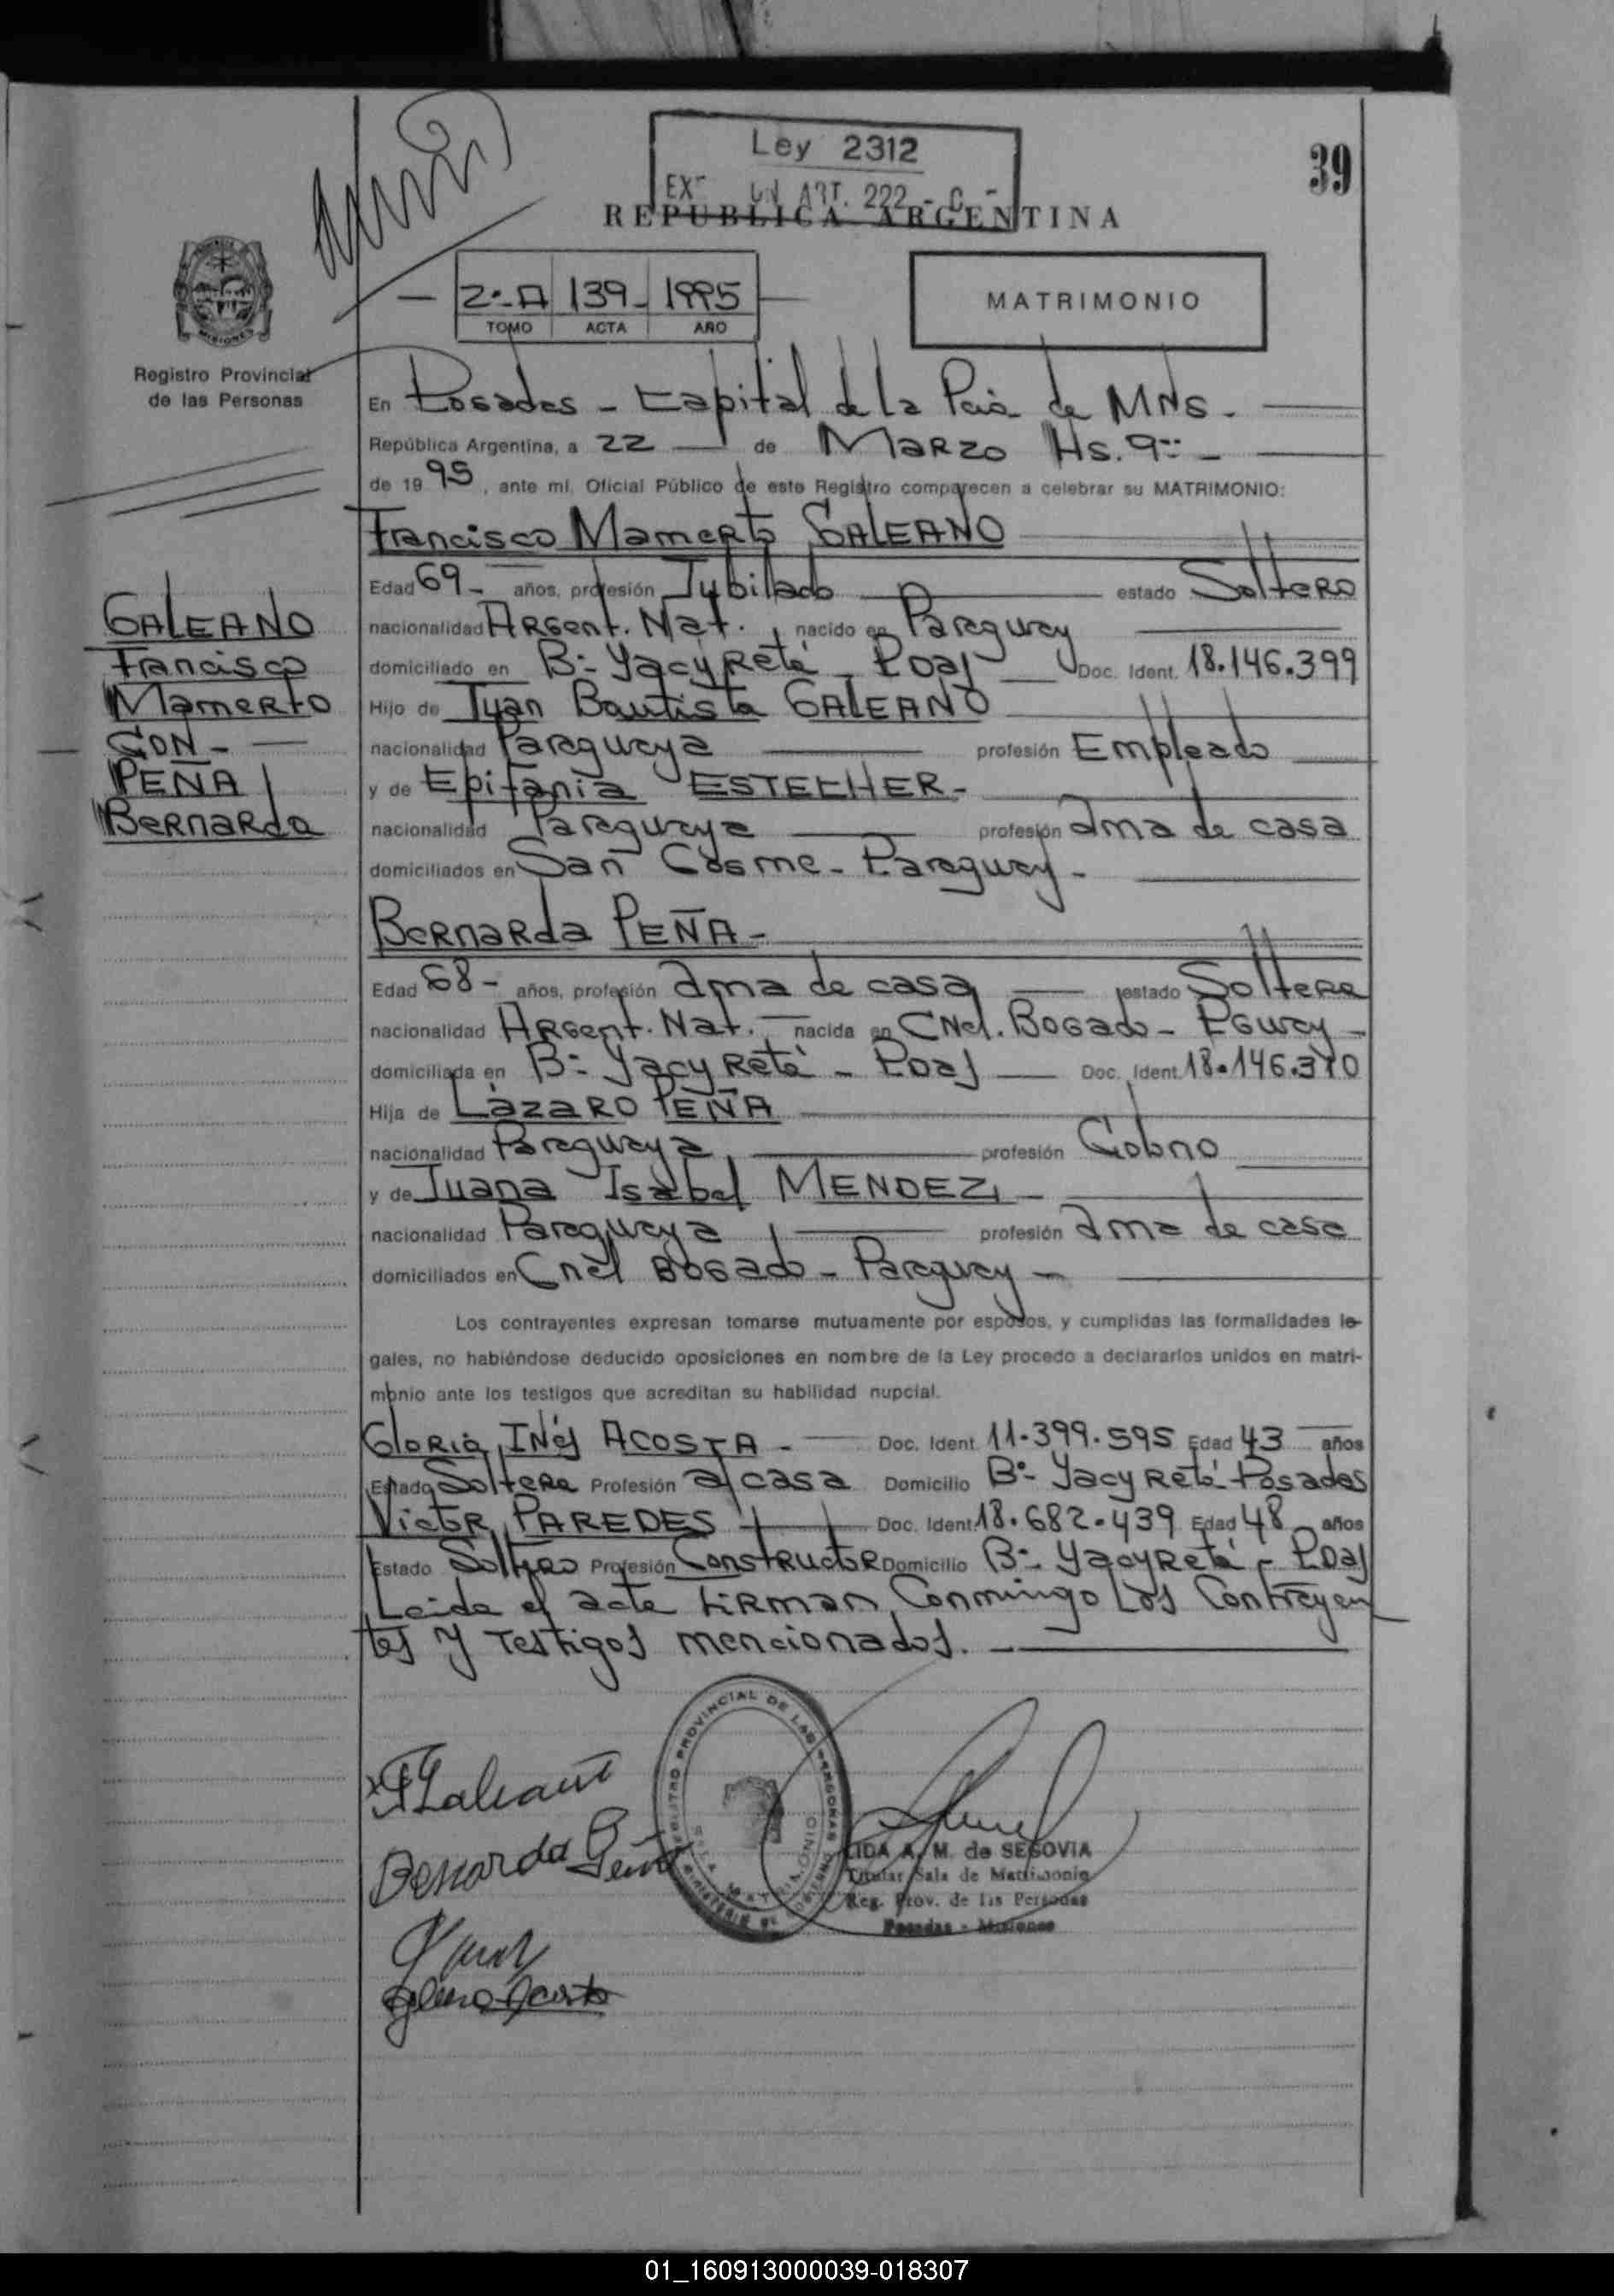 Ley 2312
ART. 222
39
REPUBLICA ARGENTINA
2º-A 139- 1995
TOMO ACTA AÑO
MATRIMONIO
Registro Provincial
de las Personas
En Posadas - Capital de la Pcia de MNS.
República Argentina, a 22 de Marzo Hs. 9
de 1995, ante mí, Oficial Público de este Registro comparecen a celebrar su MATRIMONIO:
Francisco Mamerto GALEANO
Edad 69- años, profesión Jubilado estado Soltero
nacionalidad Argent. Nat. nacido en Paraguay
domiciliado en Bº- Yacyretá - Pdas Doc. Ident. 18.146.399
Hijo de Juan Bautista GALEANO
nacionalidad Paraguaya profesión Empleado
y de Epifania ESTECHER-
nacionalidad Paraguaya profesión ama de casa
domiciliados en San Cosme - Paraguay -
GALEANO
Francisco
Mamerto
CON-
PEÑA
Bernarda
Bernarda PEÑA-
Edad 68- años, profesión ama de casa estado Soltera
nacionalidad Argent. Nat. nacida en CNel. Bogado - Pguay
domiciliada en Bº- Yacyretá - Pdas Doc. Ident. 18.146.370
Hija de Lázaro PEÑA
nacionalidad Paraguaya profesión
y de Juana Isabel MENDEZ -
nacionalidad Paraguaya profesión ama de casa
domiciliados en Cnel Bogado - Paraguay -
Los contrayentes expresan tomarse mutuamente por esposos, y cumplidas las formalidades le-
gales, no habiéndose deducido oposiciones en nombre de la Ley procedo a declararlos unidos en matri-
monio ante los testigos que acreditan su habilidad nupcial.
Gloria Inés ACOSTA - Doc. Ident. 11.399.595 Edad 43 años
Estado Soltera Profesión a/casa Domicilio Bº- Yacyretá Posadas
Victor PAREDES Doc. Ident. 18.682.439 Edad 48 años
Estado Soltero Profesión Constructor Domicilio Bº- Yacyretá - Pdas
Leida el acta firman Conmingo Los Contrayen
tes y Testigos mencionados.
FGaleano
Bernarda Peña
REGISTRO PROVINCIAL DE LAS PERSONAS
LIDA A. M. de SEGOVIA
Titular Sala de Matrimonio
Reg. Prov. de las Personas
Posadas - Misiones
Gloria Acosta
01_160913000039-018307